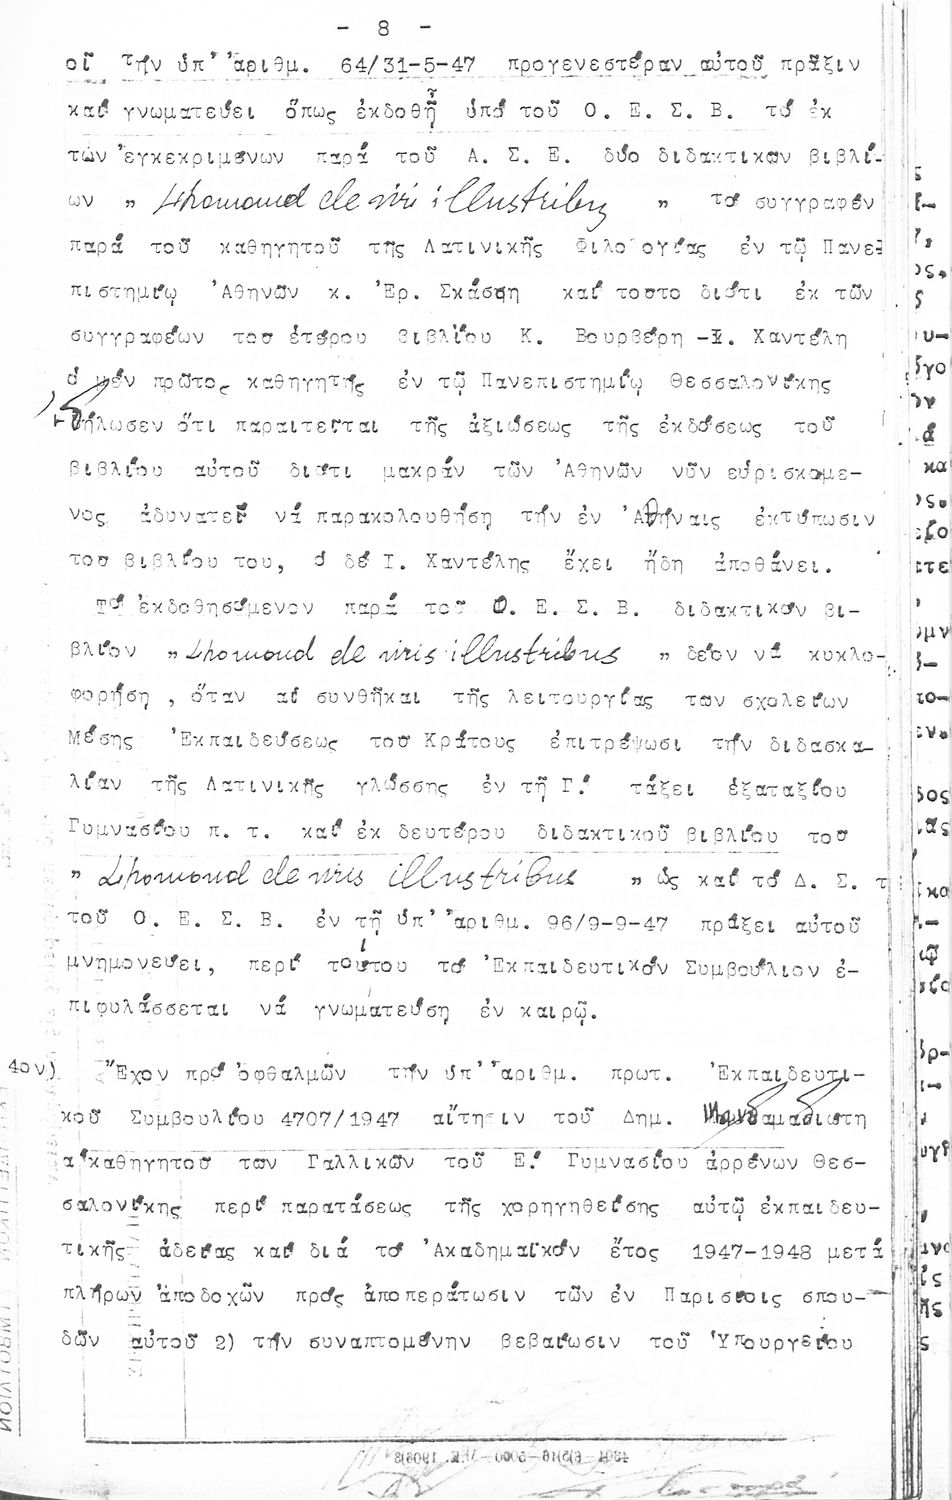 - 8 -
οῖ τήν ὑπ' ἀριθμ. 64/31-5-47 προγενεστέραν αὐτοῦ πρᾶξιν
καί γνωματεύει ὅπως ἐκδοθῇ ὑπό τοῦ Ο. Ε. Σ. Β. τό ἐκ
τῶν ἐγκεκριμένων παρά τοῦ Α. Σ. Ε. δύο διδακτικῶν βιβλί-
ων " Lhomond de viri illustribus " τό συγγραφέν
παρά τοῦ καθηγητοῦ τῆς Λατινικῆς Φιλολογίας ἐν τῷ Πανε-
πιστημίῳ Ἀθηνῶν κ. Ἐρ. Σκάσση καί τοῦτο διότι ἐκ τῶν
συγγραφέων τοῦ ἑτέρου βιβλίου Κ. Βουρβέρη -Ι. Χαντέλη
ὁ μέν πρῶτος καθηγητής ἐν τῷ Πανεπιστημίῳ Θεσσαλονίκης
δήλωσεν ὅτι παραιτεῖται τῆς ἀξιώσεως τῆς ἐκδόσεως τοῦ
βιβλίου αὐτοῦ διότι μακράν τῶν Ἀθηνῶν νῦν εὑρισκόμε-
νος ἀδυνατεῖ νά παρακολουθήσῃ τήν ἐν Ἀθήναις ἐκτύπωσιν
τοῦ βιβλίου του, ὁ δέ Ι. Χαντέλης ἔχει ἤδη ἀποθάνει.
Τό ἐκδοθησόμενον παρά τοῦ Ο. Ε. Σ. Β. διδακτικόν βι-
βλίον " Lhomond de viris illustribus " δέον νά κυκλο-
φορήσῃ , ὅταν αἱ συνθῆκαι τῆς λειτουργίας τῶν σχολείων
Μέσης Ἐκπαιδεύσεως τοῦ Κράτους ἐπιτρέψωσι τήν διδασκα-
λίαν τῆς Λατινικῆς γλώσσης ἐν τῇ Γ.' τάξει ἑξαταξίου
Γυμνασίου π. τ. καί ἐκ δευτέρου διδακτικοῦ βιβλίου τοῦ
" Lhomond de viris illustribus " ὡς καί τό Δ. Σ. τ
τοῦ Ο. Ε. Σ. Β. ἐν τῇ ὑπ' ἀριθμ. 96/9-9-47 πράξει αὐτοῦ
μνημονεύει, περί τούτου τό Ἐκπαιδευτικόν Συμβούλιον ἐ-
πιφυλάσσεται νά γνωματεύσῃ ἐν καιρῷ.
4ον) Ἔχον πρό ὀφθαλμῶν τήν ὑπ' ἀριθμ. πρωτ. Ἐκπαιδευτι-
κοῦ Συμβουλίου 4707/1947 αἴτησιν τοῦ Δημ.
α' καθηγητοῦ τῶν Γαλλικῶν τοῦ Ε.' Γυμνασίου ἀρρένων Θεσ-
σαλονίκης περί παρατάσεως τῆς χορηγηθείσης αὐτῷ ἐκπαιδευ-
τικῆς ἀδείας καί διά τό Ἀκαδημαϊκόν ἔτος 1947-1948 μετά
πλήρων ἀποδοχῶν πρός ἀποπεράτωσιν τῶν ἐν Παρισίοις σπου-
δῶν αὐτοῦ 2) τήν συναπτομένην βεβαίωσιν τοῦ Ὑπουργείου